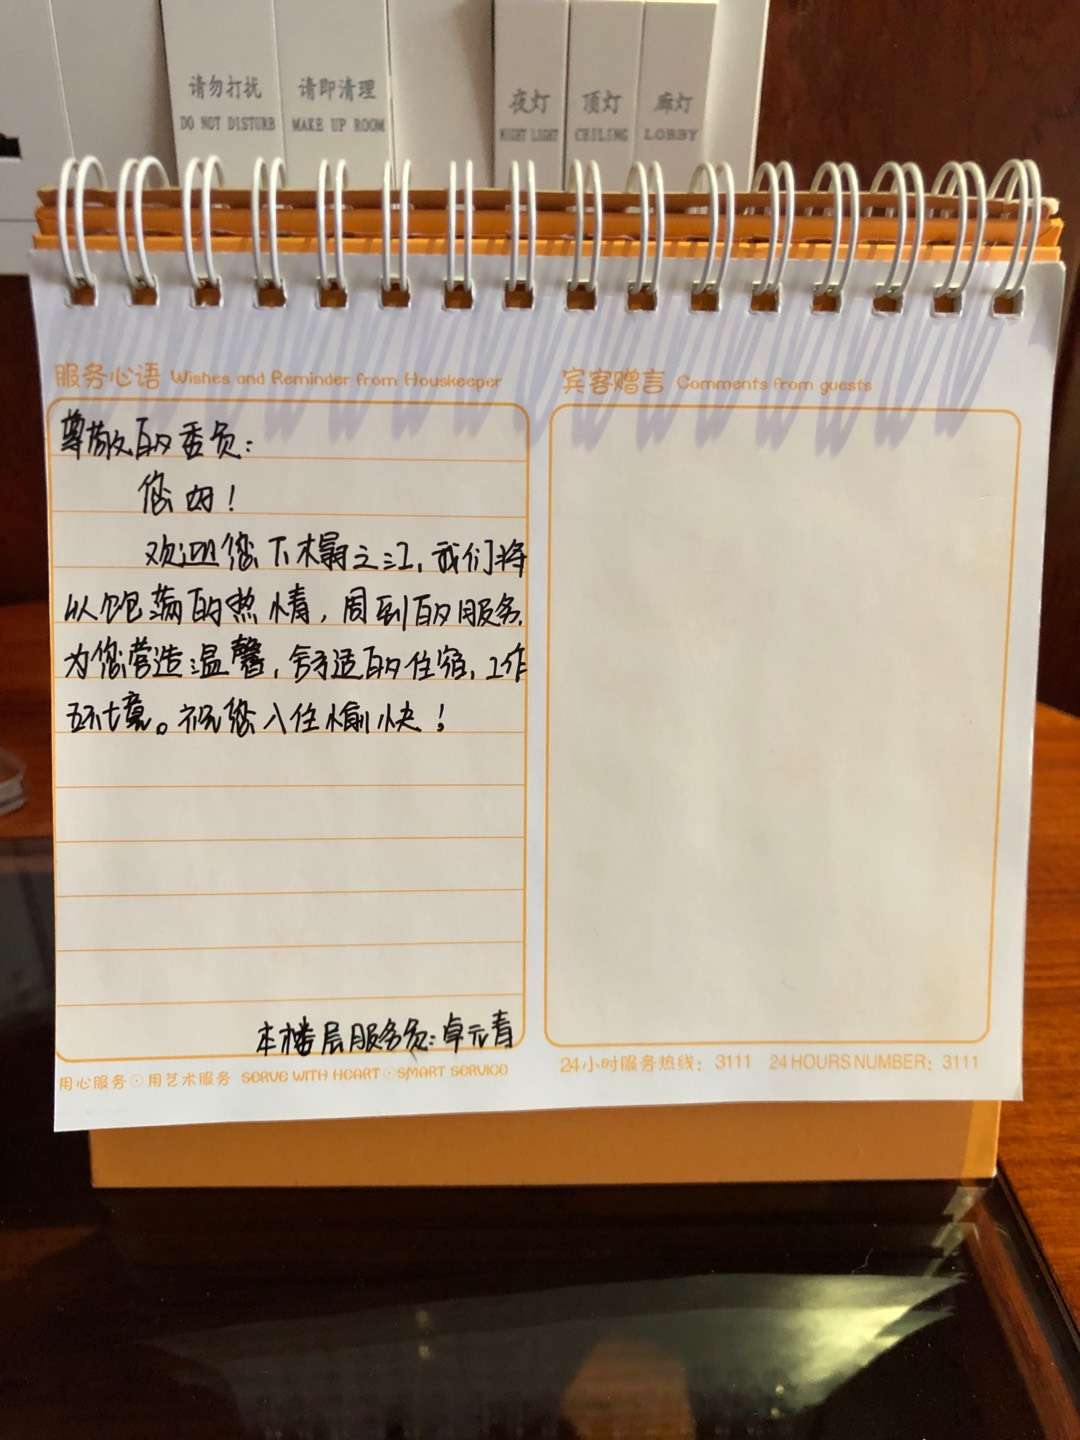 请勿打扰
DO NOT DISTURB
请即清理
MAKE UP ROOM
夜灯
NIGHT LIGHT
顶灯
CEILING
廊灯
LOBBY
服务心语 Wishes and Reminder from Houskeeper
尊敬的委员：
您好！
欢迎您下榻之江，我们将
以饱满的热情，周到的服务，
为您营造温馨，舒适的住宿、工作
环境。祝您入住愉快！
本楼层服务员：卓元青
用心服务⊙用艺术服务 SERVE WITH HEART⊙SMART SERVICE
宾客赠言 Comments from guests
24小时服务热线：3111 24 HOURS NUMBER：3111